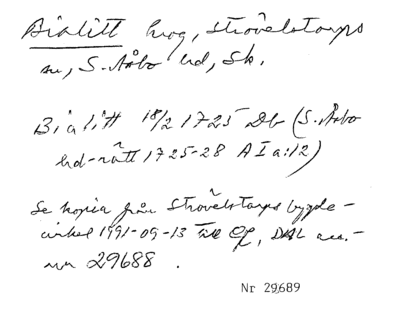 Bialitt krog, Strövelstorps
sn, S. Åsbo hd, Sk.
Bialitt 18/2 1725 Db (S. Åsbo
hd-rätt 1725-28 A I a:12)
Se kopia från Strövelstorps bygde-
cirkel 1991-09-13 till OJ, DAL acc.-
nr 29688.
Nr 29689